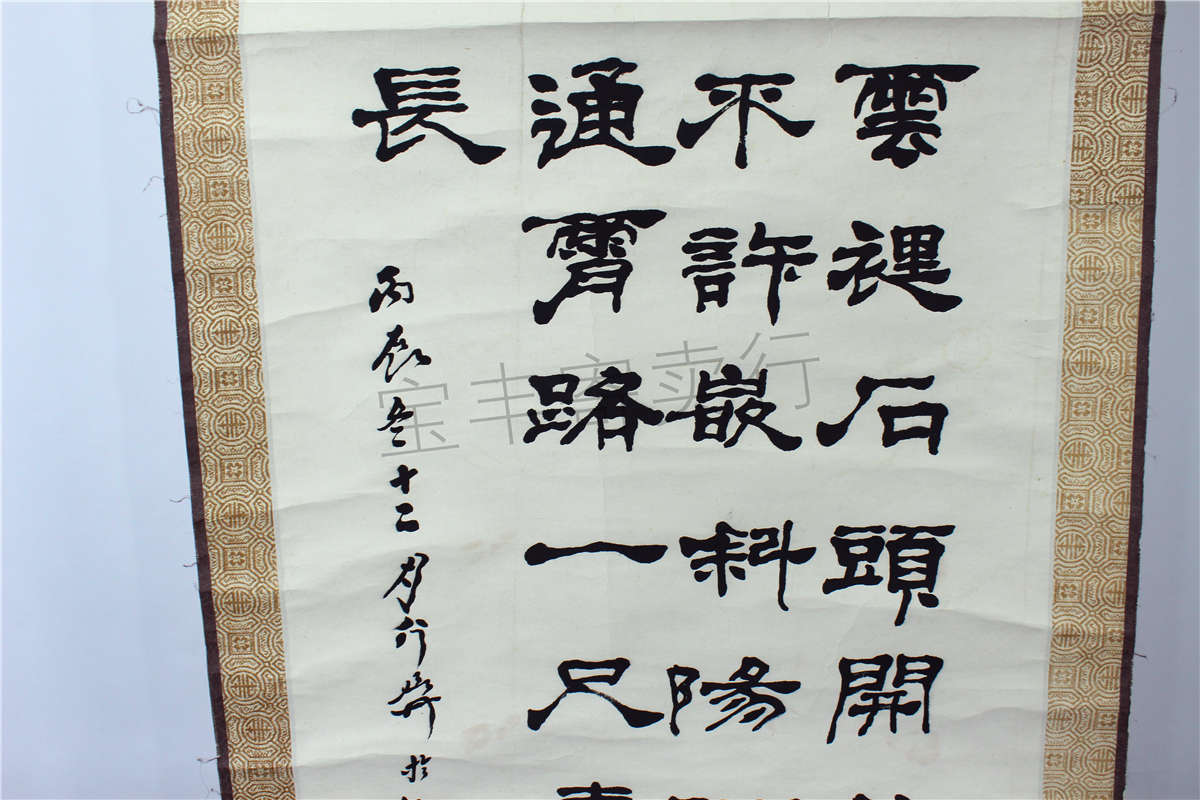 雲裡石頭開
不許嵌斜陽
通霄路一尺
長
丙辰冬十二月行於
宝丰寄卖行